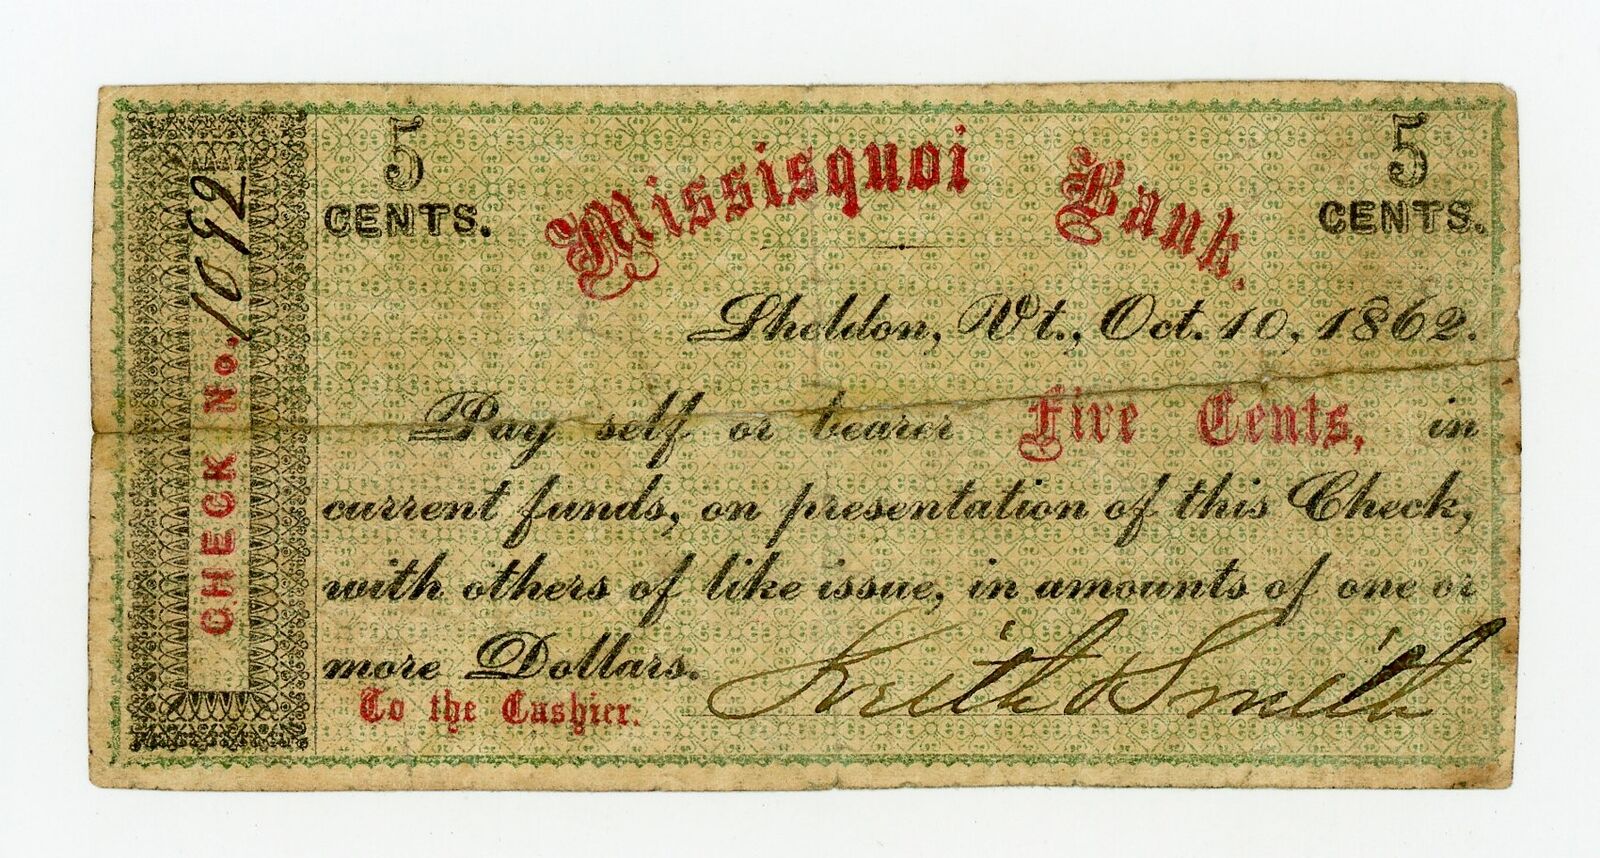 5 CENTS.
Missisquoi Bank.
5 CENTS.
CHECK No. 1092
Sheldon, Vt., Oct. 10, 1862.
Pay self or bearer Five Cents, in
current funds, on presentation of this Check,
with others of like issue, in amounts of one or
more Dollars.
To the Cashier.
Keith & Smith